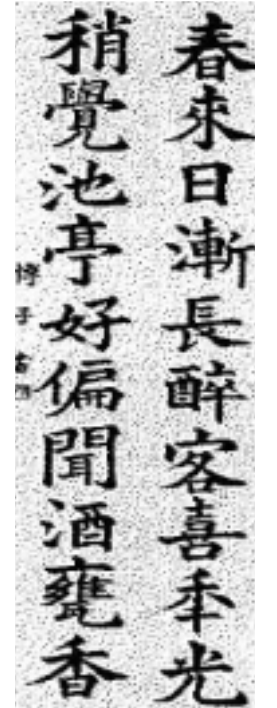 春來日漸長醉客喜年光
稍覺池亭好偏聞酒甕香